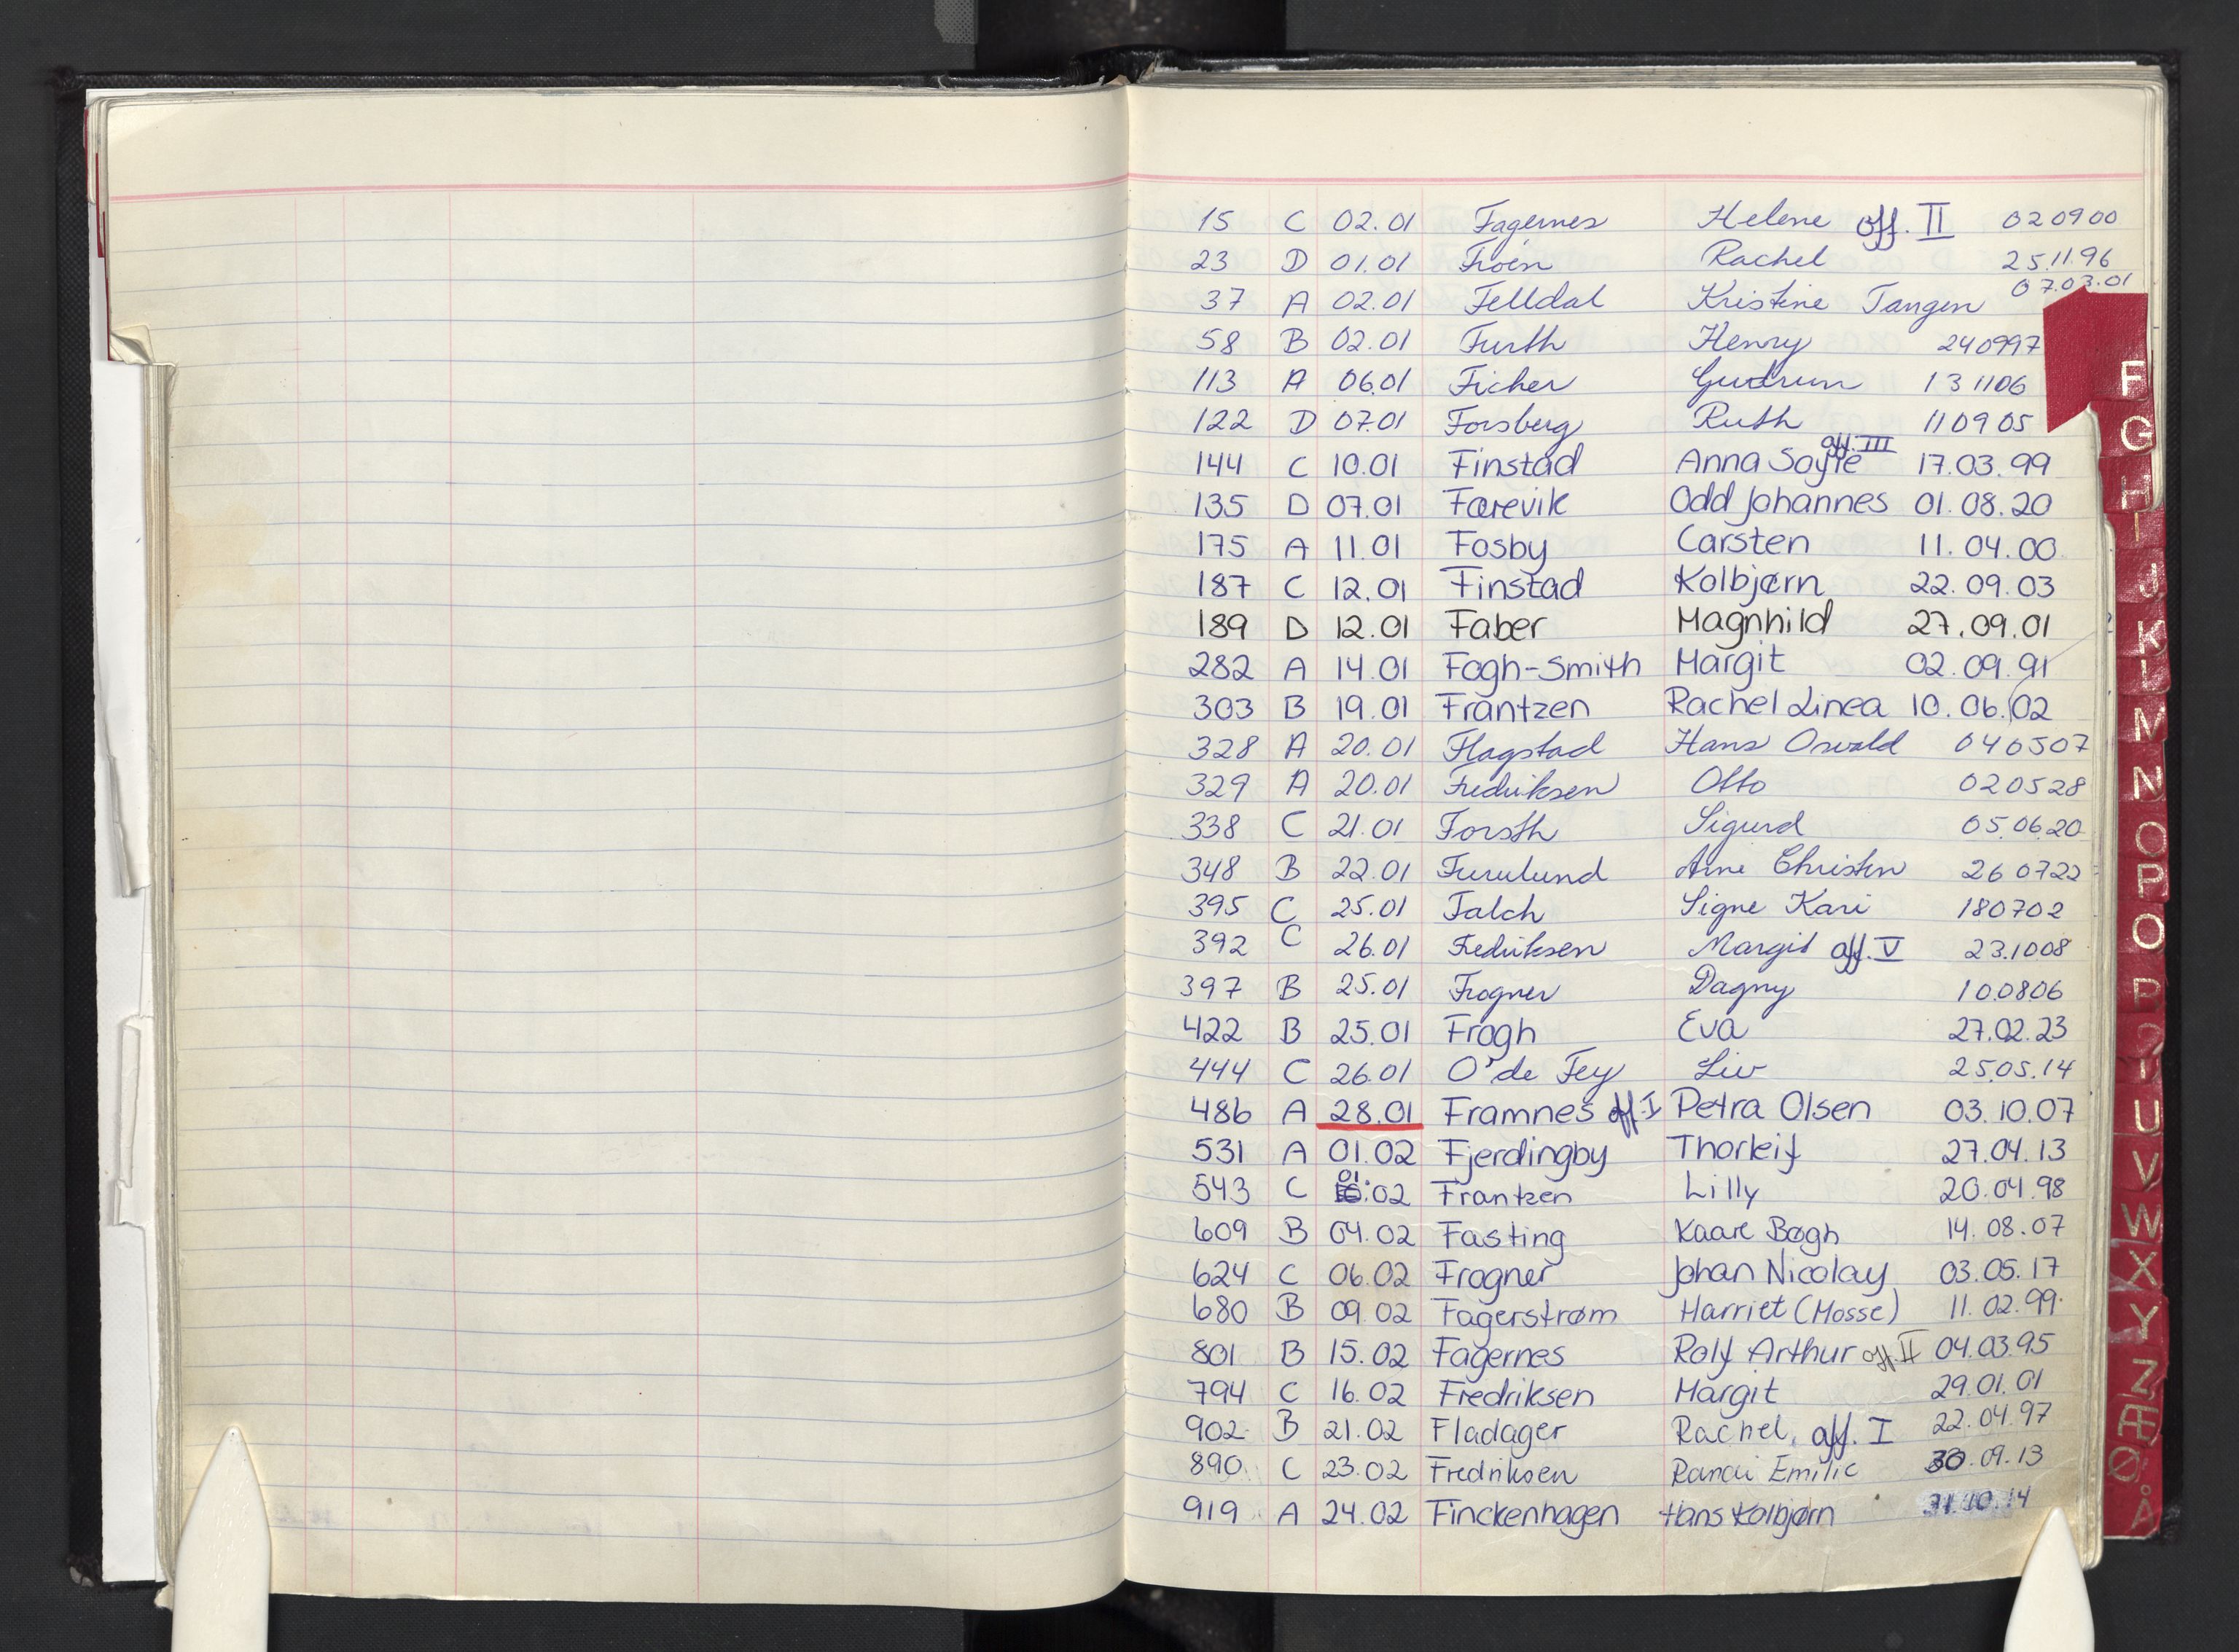 15 C 02.01 Fagernes Helene off. II 020900
23 D 01.01 Froén Rachel 25.11.96
37 A 02.01 Felldal Kristine Tangen 07.03.01
58 B 02.01 Furth Henry 240997
113 A 06.01 Ficher Gudrun 131106
122 D 07.01 Forsberg Ruth 110905
144 C 10.01 Finstad Anna Sofie off. III 17.03.99
135 D 07.01 Færevik Odd Johannes 01.08.20
175 A 11.01 Fosby Carsten 11.04.00
187 C 12.01 Finstad Kolbjørn 22.09.03
189 D 12.01 Faber Magnhild 27.09.01
282 A 14.01 Fogh-Smith Margit 02.09.91
303 B 19.01 Frantzen Rachel Linea 10.06.02
328 A 20.01 Flagstad Hans Oswald 040507
329 A 20.01 Fredriksen Otto 020528
338 C 21.01 Forsth Sigurd 05.06.20
348 B 22.01 Furulund Arne Christen 260722
395 C 25.01 Falch Signe Kari 180702
392 C 26.01 Fredriksen Margit off. V 23.1008
397 B 25.01 Frogner Dagny 10.0806
422 B 25.01 Frogh Eva 27.02.23
444 C 26.01 O'de Fey Liv 25.05.14
486 A 28.01 Framnes off. I Petra Olsen 03.10.07
531 A 01.02 Fjerdingby Thorleif 27.04.13
543 C 01.02 Frantzen Lilly 20.04.98
609 B 04.02 Fasting Kaare Bøgh 14.08.07
624 C 06.02 Frogner Johan Nicolay 03.05.17
680 B 09.02 Fagerstrøm Harriet (Mosse) 11.02.99
801 B 15.02 Fagernes Rolf Arthur off. II 04.03.95
794 C 16.02 Fredriksen Margit 29.01.01
902 B 21.02 Fladager Rachel. off. I 22.04.97
890 C 23.02 Fredriksen Randi Emilie 30.09.13
919 A 24.02 Finckenhagen Hans Kolbjørn 31.10.14
F
G
H
I
J
K
L
M
N
O
P
O
P
U
V
W
X
Y
Z
Æ
Ø
Å